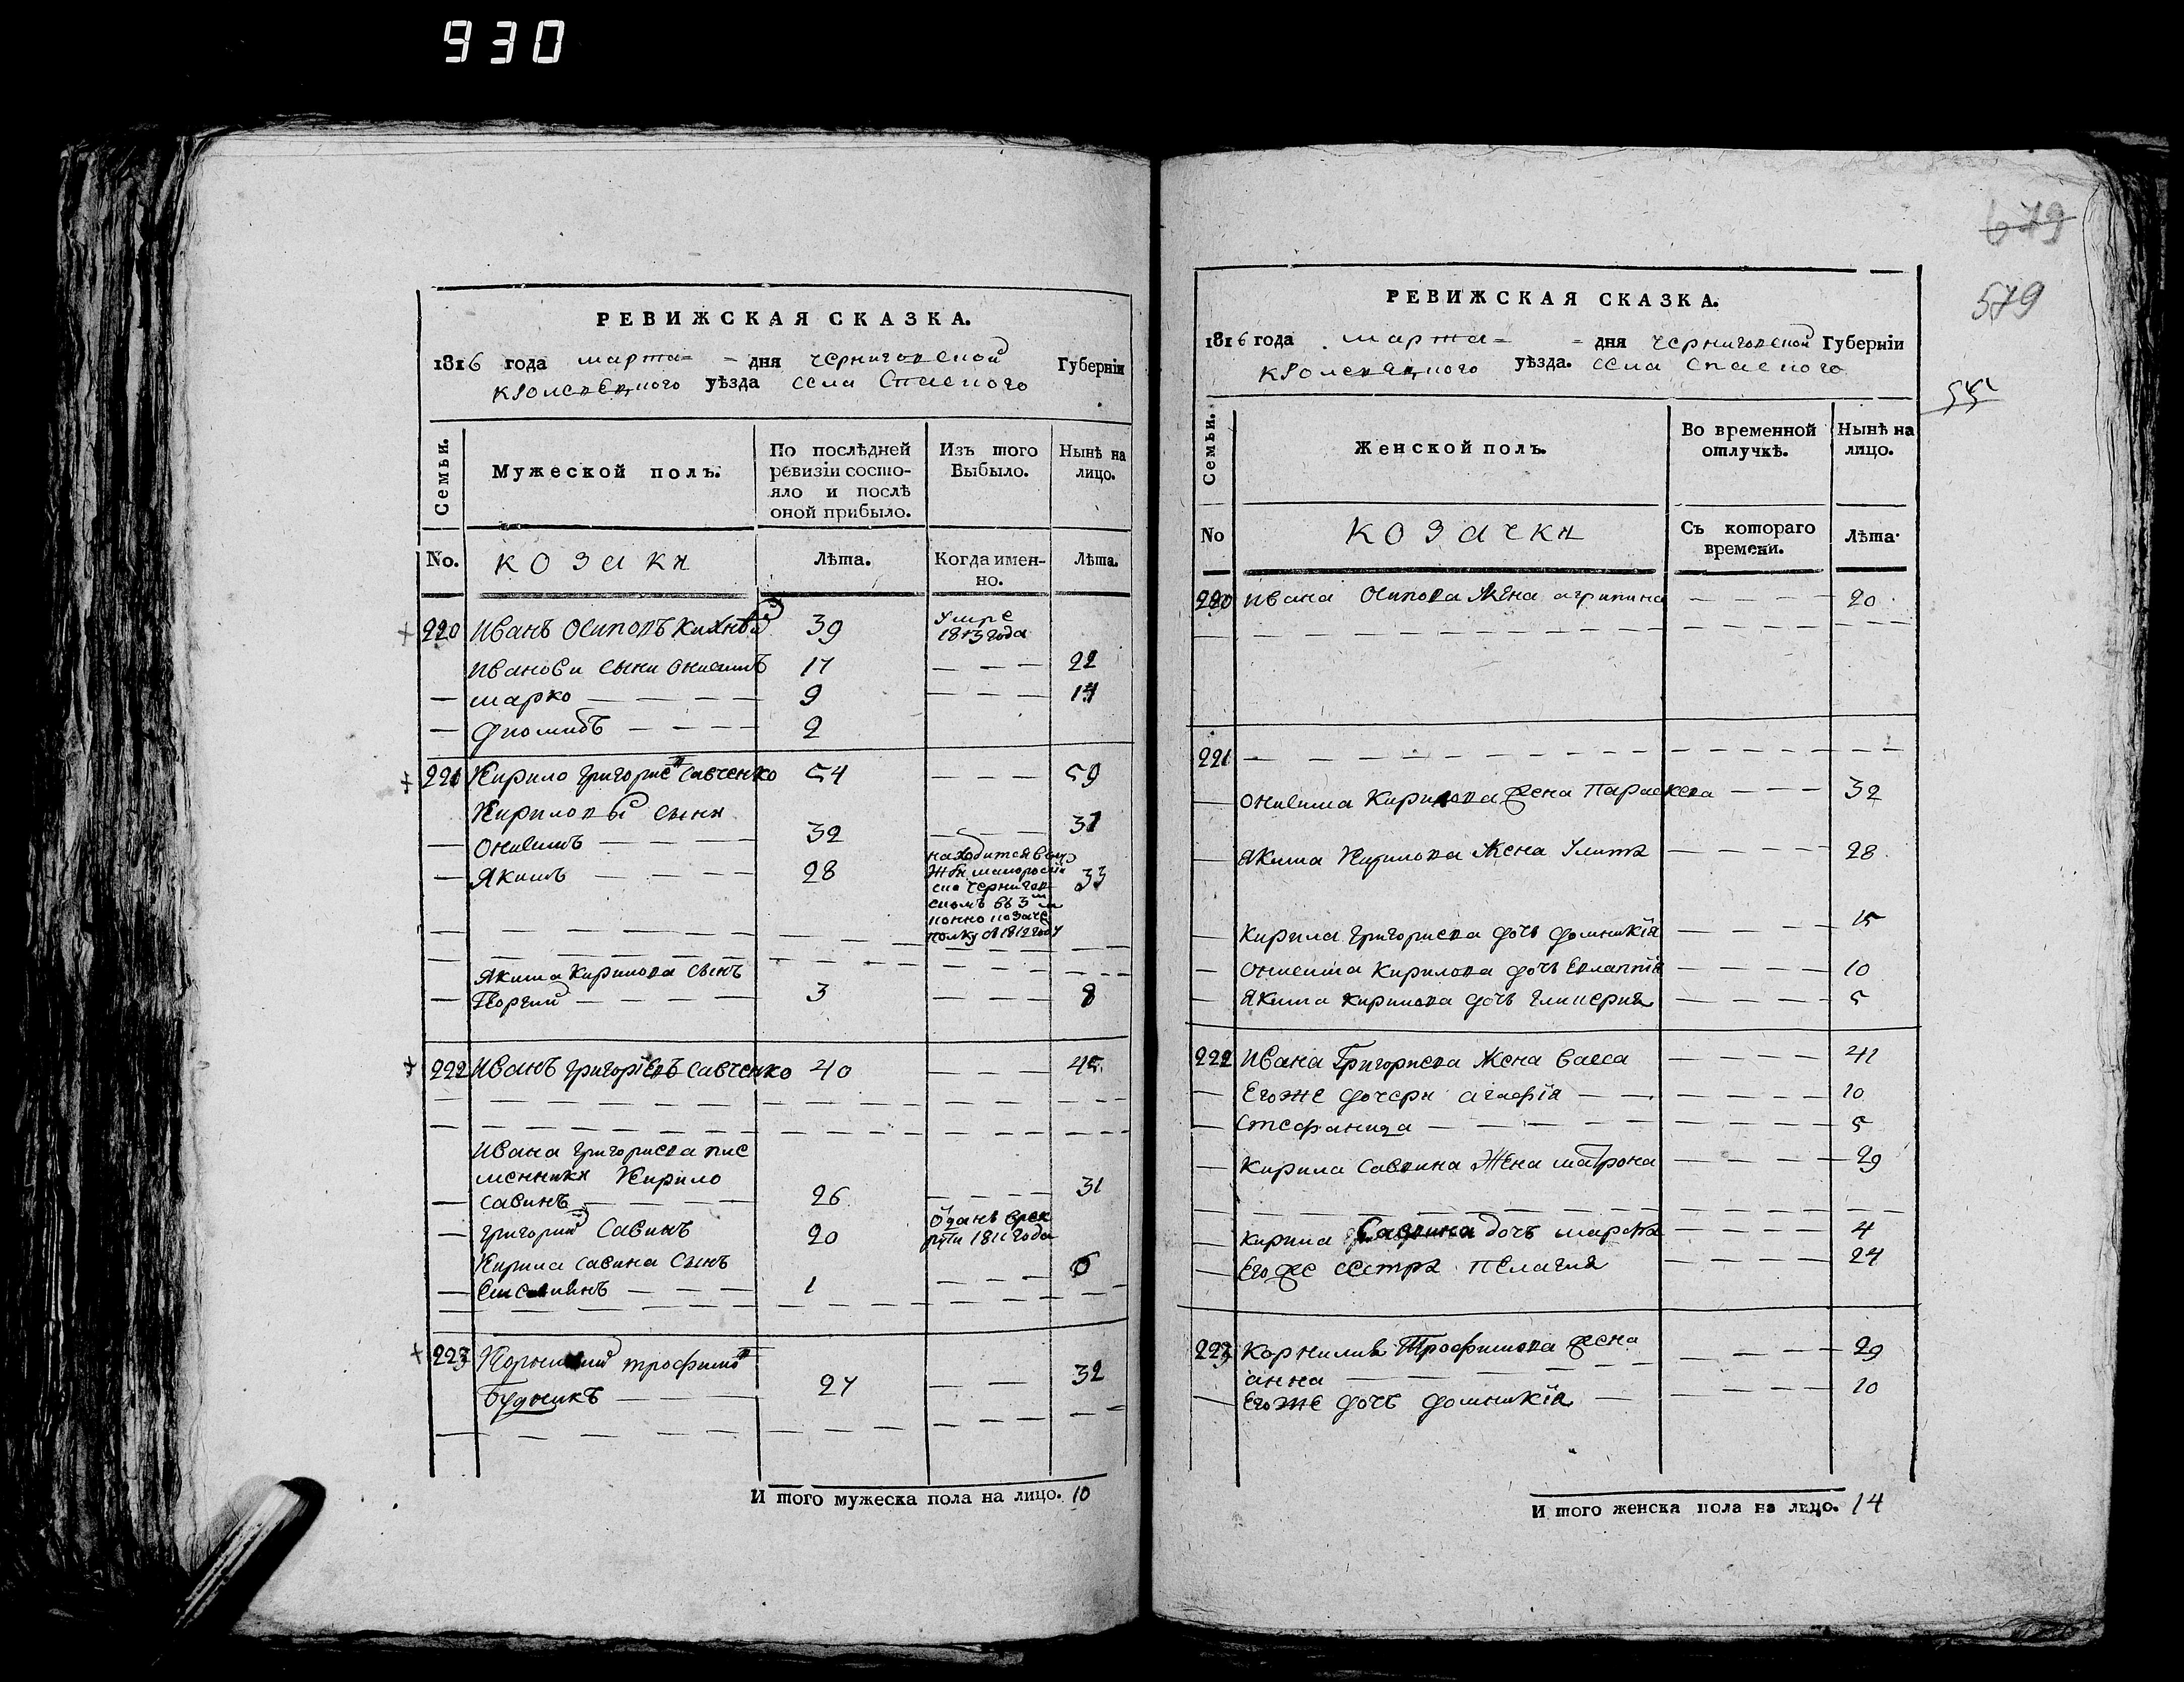 930
РЕВИЖСКАЯ СКАЗКА.
1816 года марта = - дня черниговской Губерніи
кролевецкого уѣзда села Спаского
Семьи.
Мужеской полъ.
По послѣдней ревизіи состо-
яло и послѣ
оной прибыло.
Изъ того
Выбыло.
Нынѣ на
лицо.
No. козаки Лѣта. Когда имен-
но. Лѣта.
220 Иванъ Осиповъ 39 умре
1813 года
Иванови сыни Онисимъ 17 22
марко 9 14
2
221 Кирило григориевъ Савченко 54 59
Кириловы сыни
Онисимъ 32 37
Якимъ 28 находится
33
Якима Кирилова сынъ
Георгий 3 8
222 Иванъ григоріевъ Савченко 40 45
Ивана григориева пле
менники Кирило
Савинъ 26 31
григорий Савинъ 20 оданъ врек
рути 1811 года
Кирила савина Сынъ
1 6
223 Корнилий трофимовъ
Будникъ 27 32
И того мужеска пола на лицо. 10
679
579
РЕВИЖСКАЯ СКАЗКА.
1816 года марта = = дня черниговской Губерніи
кролевецкого уѣзда. села Спаского
Семьи.
Женской полъ.
Во временной
отлучкѣ.
Нынѣ на
лицо.
No козачки Съ котораго
времени. Лѣта.
220 Ивана Осипова Жена агрипина 20
221
Онисима Кирилова жена Параскева 32
Якима Кирилова Жена Улита 28
Кирила григориева дочь домникія 15
Онисима Кирилова дочь Евлампія 10
Якима Кирилова дочь гликерия 5
222 Ивана Григориева Жена васса 41
Егоже дочери агафія 10
Стефанида 5
Кирила Савина Жена матрона 29
Кирила Савина дочъ марфа 4
Егоже сестра пелагия 24
223 Корнилия Трофимова жена 29
анна
Егоже дочъ домникія 10
И того женска пола на лицо. 14